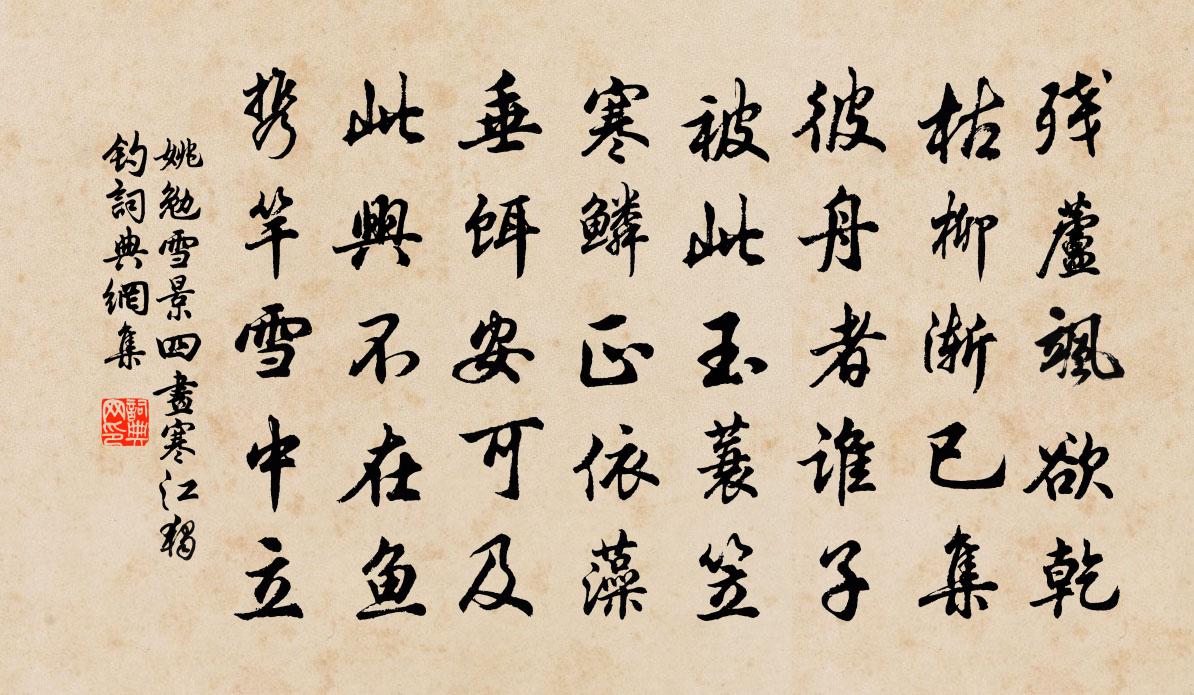 残蘆颯欲乾
枯柳渐已集
彼舟者谁子
被此玉蓑笠
寒鳞正依藻
垂饵安可及
此興不在鱼
携竿雪中立
姚勉雪景四畫寒江獨
釣詞典網集
詞典网印